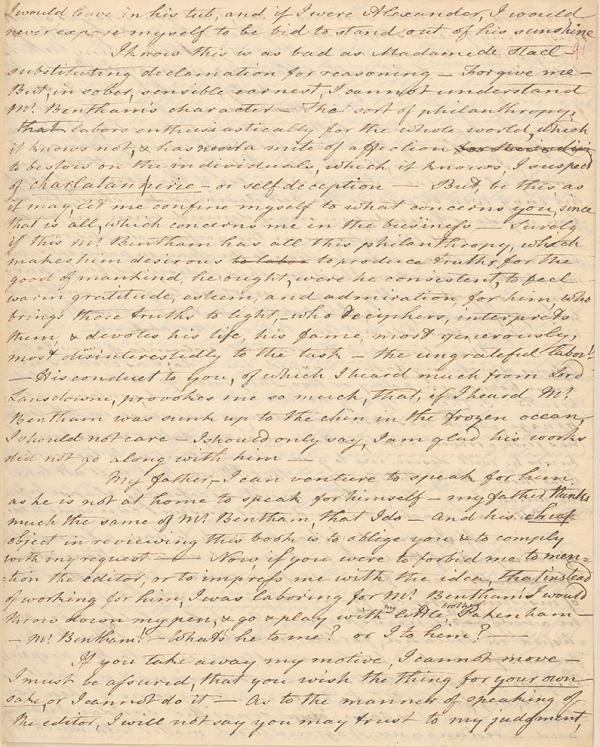 I would leave in his tub, and if I were Alexander, I would
never expose myself to be bid to stand out of his sunshine
I know this is as bad as Madame de Stael –
substituting declamation for reasoning – Forgive me –
But in sober, sensible earnest, I cannot understand
Mr. Bentham's character – The sort of philanthropy,
that labors enthusiastically for the whole world, which
it knows not, & has not a mite of affection
to bestow on the individuals, which it knows, I suspect
of charlatanpirie – or self deception — But, be this as
it may let me confine myself to what concerns you, since
that is all, which concerns me in the business – Surely
if this Mr. Bentham has all this philanthropy, which
makes him desirous to labor to produce truths for the
good of mankind, he ought, were he consistent, to feel
warm gratitude, esteem, and admiration, for him, who
brings those truths to light, – who deciphers, interprets
them, & devotes his life, his fame, most generously,
most disinterestedly to the task – the ungrateful labor!
– His conduct to you, of which I heard much from Lord
Lansdowne, provokes me so much, that, if I heard Mr.
Bentham was sunk up to the chin in the frozen ocean,
I should not care – I should only say, I am glad his works
did not go along with him —
My father, – I can venture to speak for him,
as he is not at home to speak for himself – my father thinks
much the same of Mr. Bentham, that I do – and his chief
object in reviewing this book is to oblige you & to comply
with my request — Now, if you were to forbid me to men-
tion the editor, or to impress me with the idea, that instead
of working for him, I was laboring for Mr. Bentham I would
throw down my pen, & go & play with my little brother Pakenham –
– Mr. Bentham! – What's he to me? or I to him? —
If you take away my motive, I cannot move –
I must be assured, that you wish the thing for your own
sake, or I cannot do it – As to the manner of speaking of
the editor, I will not say you may trust to my judgment,